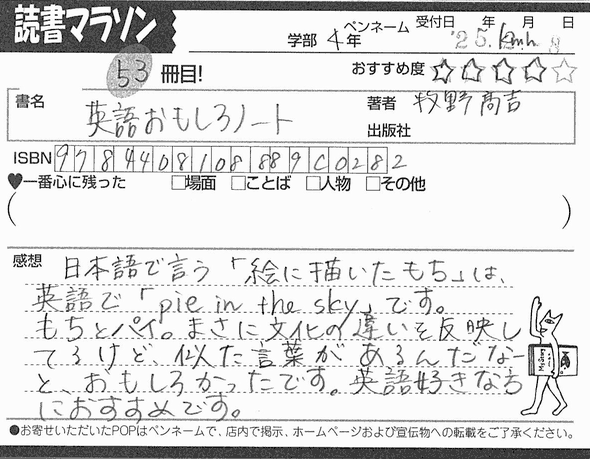 読書マラソン
学部 4年
ペンネーム
受付日 年 月 日
'25.
53冊目!
おすすめ度 ☆☆☆☆☆
書名 英語おもしろノート
著者 牧野高吉
出版社
ISBN 9784408108889C0282
♥一番心に残った □場面 □ことば □人物 □その他
( )
感想 日本語で言う「絵に描いたもち」は、
英語で「pie in the sky」です。
もちとパイ。まさに文化の違いを反映し
てるけど、似た言葉があるんだなー
と、おもしろかったです。英語好きなら
におすすめです。
●お寄せいただいたPOPはペンネームで、店内で掲示、ホームページおよび宣伝物への転載をご了承ください。